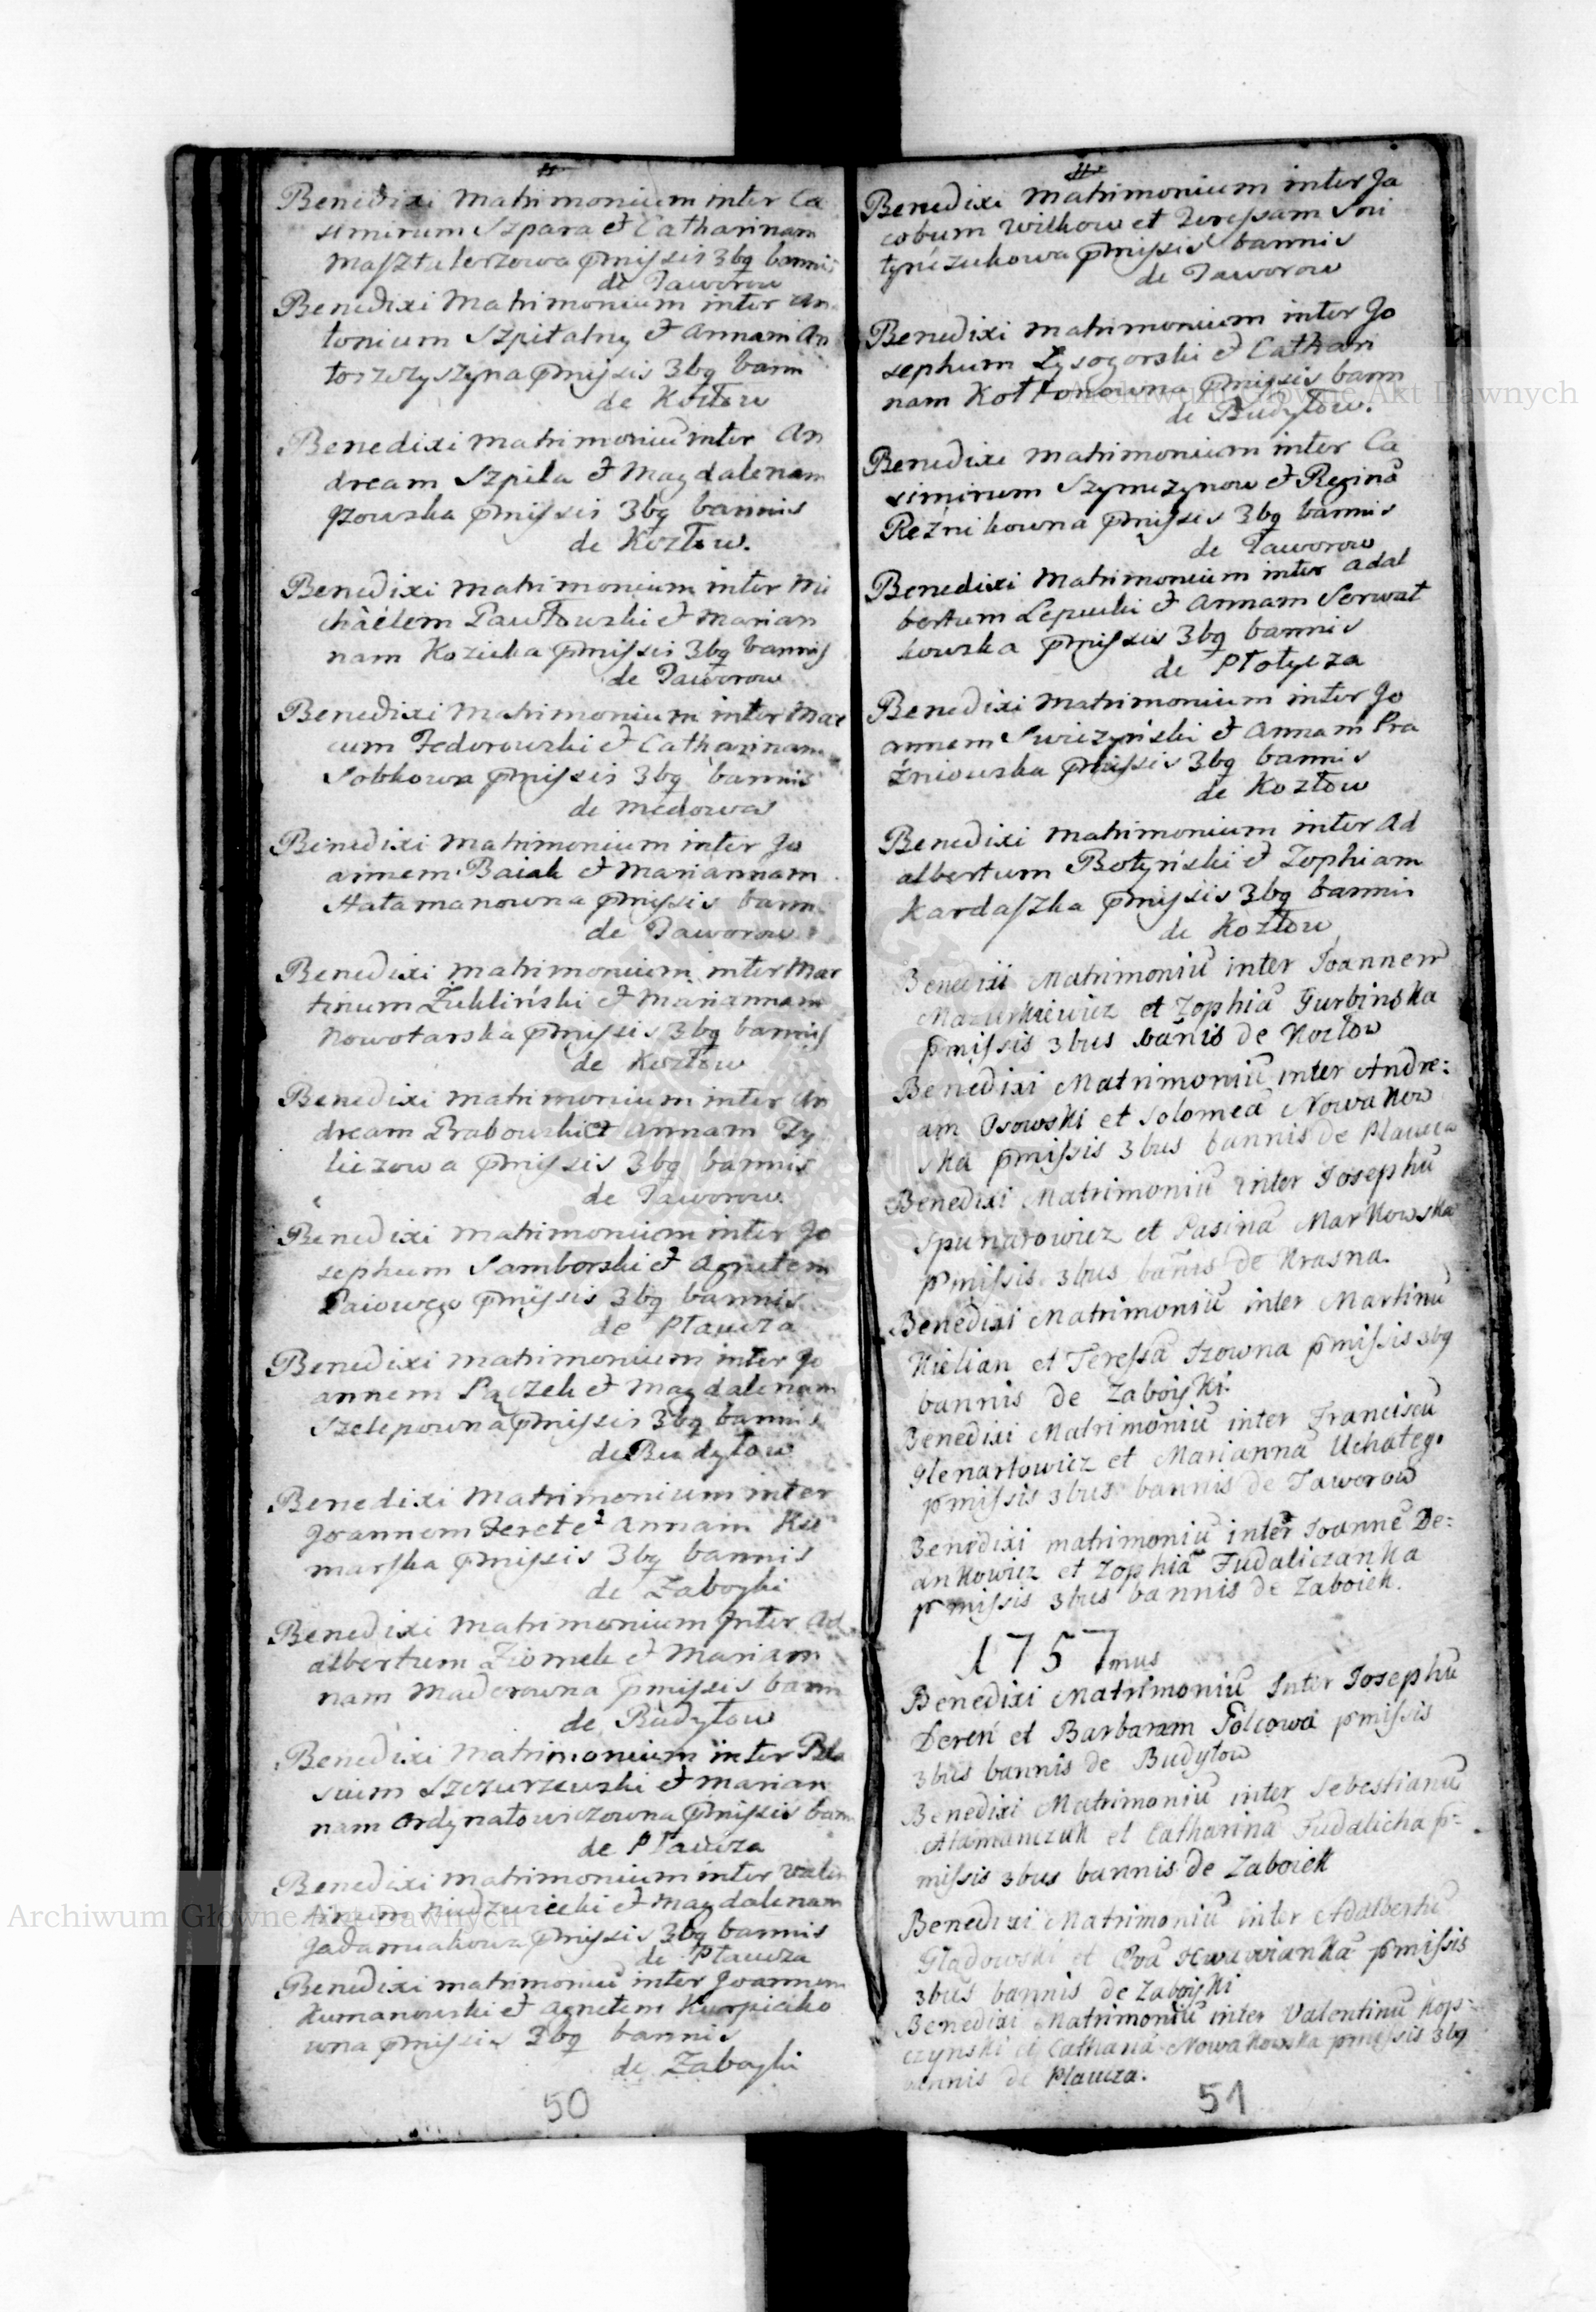 Benedixi Matrimonium inter Ca
simirum Szpara et Catharinam
Masztalerzowa p̄missis 3bq bannis
de Taworow
Benedixi Matrimonium inter An
tonium Szpitalny et Annam An
toszczyszyna p̄missis 3bq bann
de Kozłow
Benedixi matrimoniū inter An
dream Szpila et Magdalenam
Gzowska p̄missis 3bq bannis
de Kozłow.
Benedixi matrimonium inter Mi
chäelem Pawłowski et Marian
nam Kozicka p̄missis 3bq bannis
de Taworow
Benedixi Matrimonium inter Mar
cum Fedorowski et Catharinam
Sobkowa p̄missis 3bq bannis
de Medowa
Benedixi Matrimonium inter Jo
annem Baiak et Mariannam
Hałamanowna p̄missis bann
de Taworow
Benedixi matrimonium inter Mar
tinum Żukliński et Mariannam
Nowotarska p̄missis 3bq bannis
de Kozłow
Benedixi matrimonium inter An
dream Grabowski et Annam Ty
liczowa p̄missis 3bq bannis
de Taworow
Benedixi matrimonium inter Jo
sephum Samborski et Agnetem
Gaiowego p̄missis 3bq bannis
de Pławcza
Benedixi matrimonium inter Jo
annem Pączek et Magdalenam
Szelepowna p̄missis 3bq bannis
de Budyłow
Benedixi Matrimonium inter
Joannem Feret et Annam Ku
marska p̄missis 3bq bannis
de Zaboyki
Benedixi Matrimonium Inter Ad
albertum Ziomek et Marian
nam Maderowna p̄missis bann
de Budyłow
Benedixi Matrimonium inter Bla
sium Szczurzewski et Marian
nam Ordynatowiczowna p̄missis bann
de Pławcza
Benedixi matrimonium inter Valen
tinum Niedzwiecki et Magdalenam
p̄missis 3bq bannis
de Pławcza
Benedixi matrimoniū inter Joannem
Humanowski et Agnetem Kurpiciko
wna p̄missis 3bq bannis
de Zaboyki
50
Benedixi Matrimonium inter Ja
cobum Wilkow et Teressam Sni
tynczukowa p̄missis bannis
de Taworow
Benedixi matrimonium inter Jo
sephum Łysogorski et Cathari
nam Kołtonowna p̄missis bann
de Budyłow.
Benedixi matrimonium inter Ca
simirum Szymczynow et Reginā
Reźnikowna p̄missis 3bq bannis
de Taworow
Benedixi Matrimonium inter Adal
bertum Lepucki et Annam Serwat
kowska p̄missis 3bq bannis
de Płotycza
Benedixi Matrimonium inter Jo
annem Swiczyński et Annam Pra
żniowska p̄missis 3bq bannis
de Kozłow
Benedixi matrimonium inter Ad
albertum Botyński et Zophiam
Kardaszka p̄missis 3bq bannis
de Kozłow
Benedixi Matrimoniū inter Joannem
Mazurkiewicz et Zophiā Gurbinska
p̄missis 3bus bānis de Kozłow
Benedixi Matrimoniū inter Andre:
am Osowski et Solomeā Nowakow
ska p̄missis 3bus bannis de Plawcza
Benedixi Matrimoniū inter Josephū
Spunarowicz et Pasinā Markowska
p̄missis 3bus bānis de Krasna.
Benedixi Matrimoniū inter Martinū
Kielian et Teressā Szowna p̄missis 3bq
bannis de Zaboyki.
Benedixi Matrimoniū inter Franciscū
Glenartowicz et Mariannā Uchatego
p̄missis 3bus bannis de Taworow
Benedixi matrimoniū inter Joannē De:
ankowicz et Zophiā Fudaliczanka
p̄missis 3bus bannis de Zaboiek.
1757mus
Benedixi Matrimoniū Inter Josephū
Dereń et Barbaram Golcowa p̄missis
3bus bannis de Budyłow
Benedixi Matrimoniū inter Sebestianū
Atamanczuk et Catharinā Fudalicha p̄=
missis 3bus bannis de Zaboiek
Benedixi Matrimoniū inter Adalbertū
Głądowski et Evā p̄missis
3bus bannis de Zaboyki
Benedixi Matrimoniū inter Valentinū Kop=
czynski et Catharinā Nowakowska p̄missis 3bq
bannis de Plawcza.
51
Archiwum Główne Akt Dawnych
Archiwum Główne Akt Dawnych